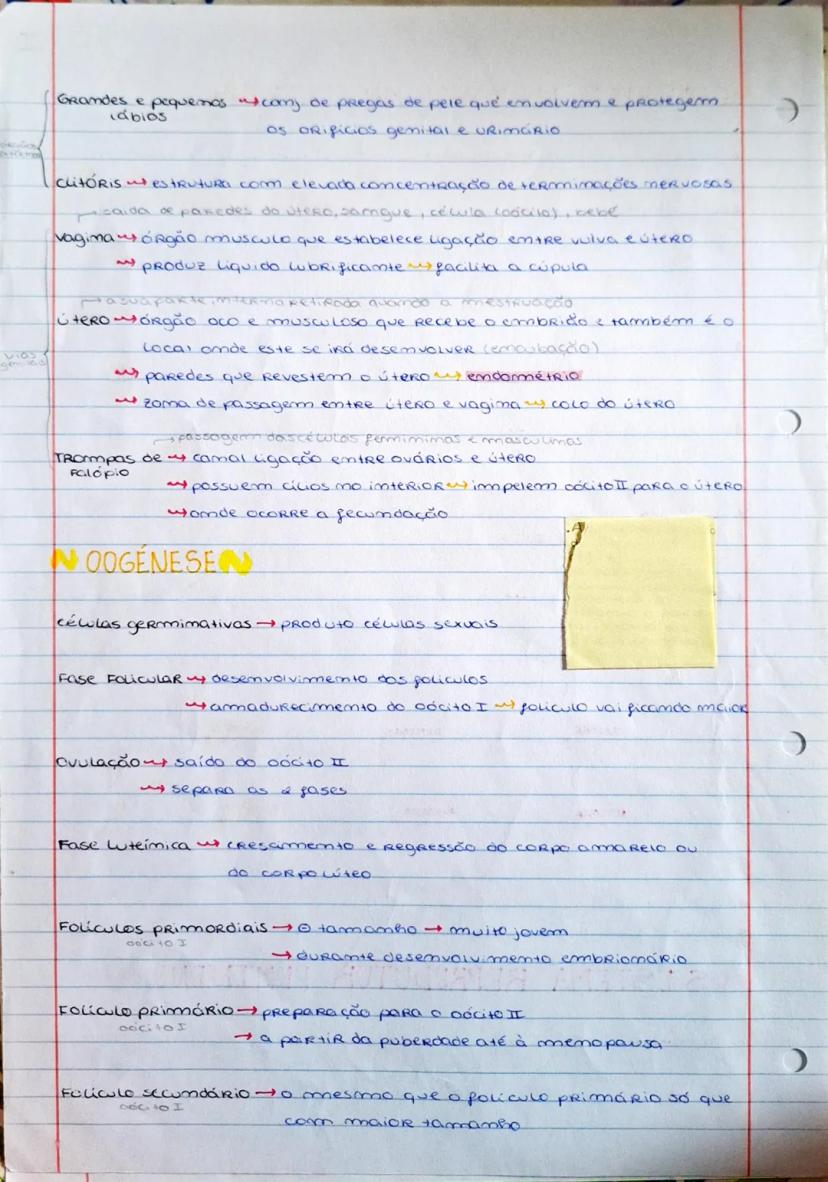 Grandes e pequenos → conj de pregas de pele que envolvem e protegem
lábios
os orifícios genital e urinário
Clitóris → estrutura com elevada concentração de terminações nervosas
→ saída de paredes do útero, sangue, célula (oócito), bebé
Vagina → órgão musculo que estabelece ligação entre vulva e útero
→ produz liquido lubrificante → facilita a cúpula
→ a sua parte interna retirada quando a mestruação
Útero → órgão oco e musculoso que recebe o embrião e também é o
local onde este se irá desenvolver
vias
→ paredes que revestem o útero → endométrio
→ zona de passagem entre útero e vagina → colo do útero
→ passagem das células femininas e masculinas
Trompas de → canal ligação entre ovários e útero
Falópio
→ possuem cílios no interior → impelem oócito II para o útero
→ onde ocorre a fecundação
OOGÉNESE
Células germinativas → produto células sexuais
Fase Folicular → desenvolvimento dos foliculos
→ amadurecimento do oócito I → foliculo vai ficando maior
Ovulação → saído do oócito II
→ separa as 2 fases
Fase Luteínica → crescimento e regressão do corpo amarelo ou
do corpo lúteo
Folículos primordiais → ⊖ tamanho → muito jovem
oócito I
→ durante desenvolvimento embrionário
Folículo primário → preparação para o oócito II
oócito I
→ a partir da puberdade até à menopausa
Folículo secundário → o mesmo que o folículo primário só que
oócito I
com maior tamanho